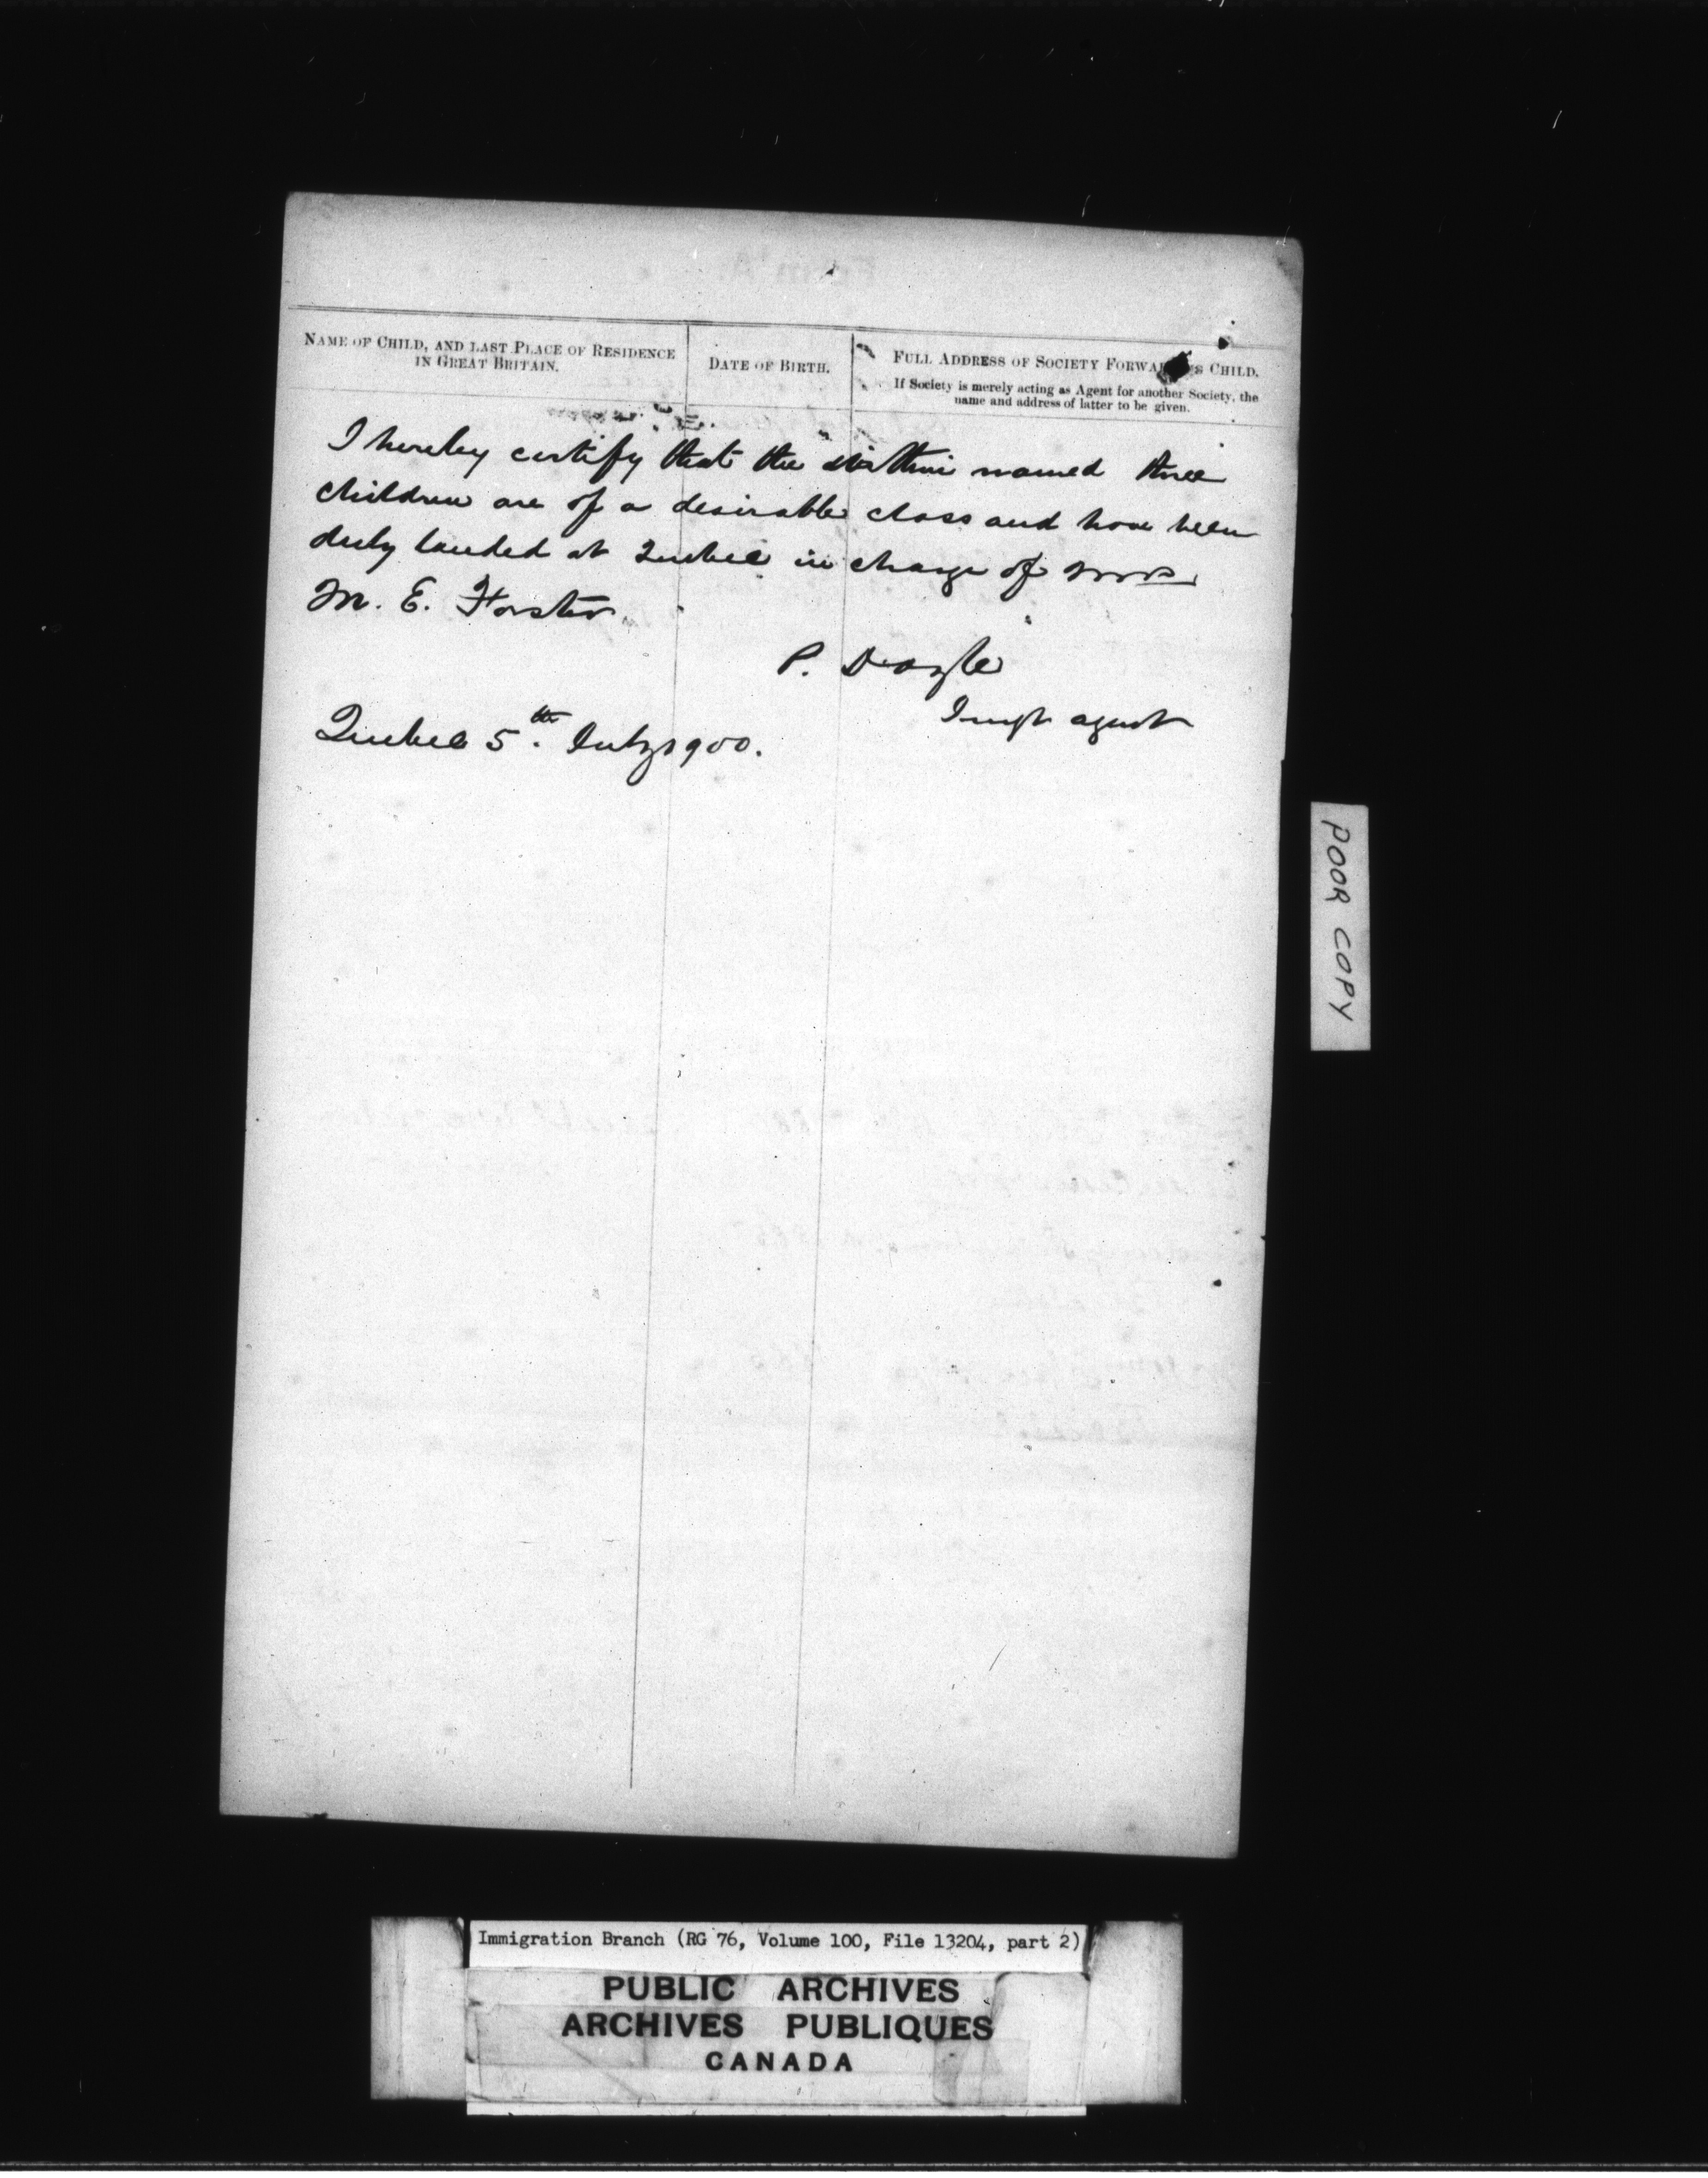 NAME OF CHILD, AND LAST PLACE OF RESIDENCE
IN GREAT BRITAIN.
DATE OF BIRTH.
FULL ADDRESS OF SOCIETY CHILD.
If Society is merely acting as Agent for another Society, the
name and address of latter to be given.
I hereby certify that the within named three
children are of a desirable class and have been
duly landed at Quebec in charge of Mrs
M. E. Forster
P. Doyle
Imgt agent
Quebec 5th. July 1900.
POOR COPY
Immigration Branch (RG 76, Volume 100, File 13204, part 2)
PUBLIC ARCHIVES
ARCHIVES PUBLIQUES
CANADA